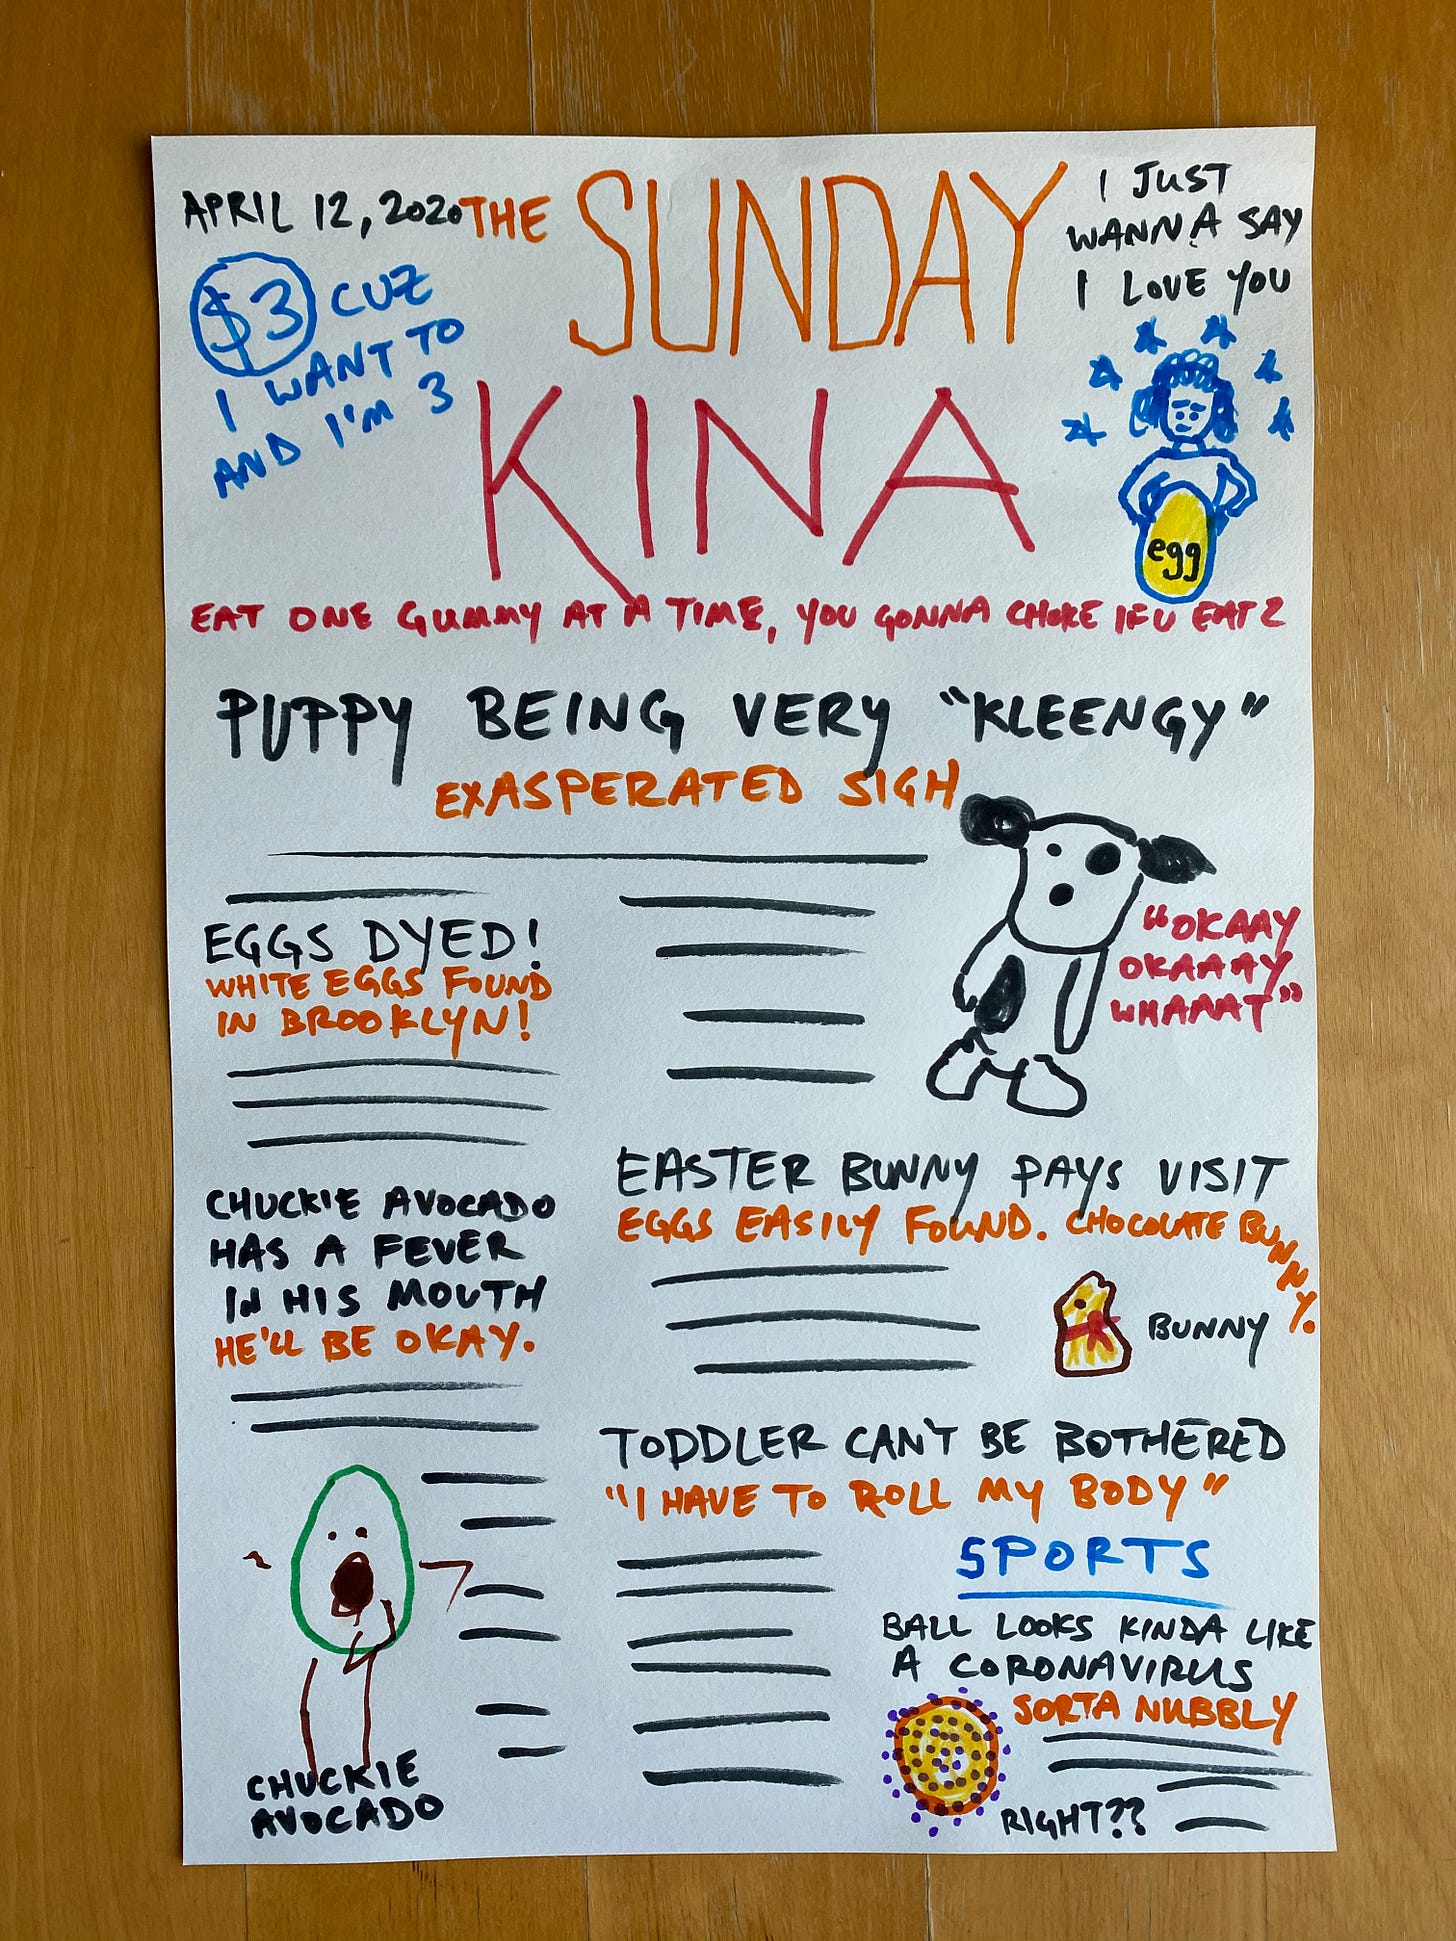 APRIL 12, 2020
THE SUNDAY
KINA
I JUST
WANNA SAY
I LOVE YOU
$3 CUZ
I WANT TO
AND I'M 3
egg
EAT ONE GUMMY AT A TIME, YOU GONNA CHOKE IF U EAT 2
PUPPY BEING VERY "KLEENGY"
EXASPERATED SIGH
"OKAAY
OKAAAY
WHAAAT"
EGGS DYED!
WHITE EGGS FOUND
IN BROOKLYN!
CHUCKIE AVOCADO
HAS A FEVER
IN HIS MOUTH
HE'LL BE OKAY.
CHUCKIE
AVOCADO
EASTER BUNNY PAYS VISIT
EGGS EASILY FOUND. CHOCOLATE BUNNY.
BUNNY
TODDLER CAN'T BE BOTHERED
"I HAVE TO ROLL MY BODY"
SPORTS
BALL LOOKS KINDA LIKE
A CORONAVIRUS
SORTA NUBBLY
RIGHT??